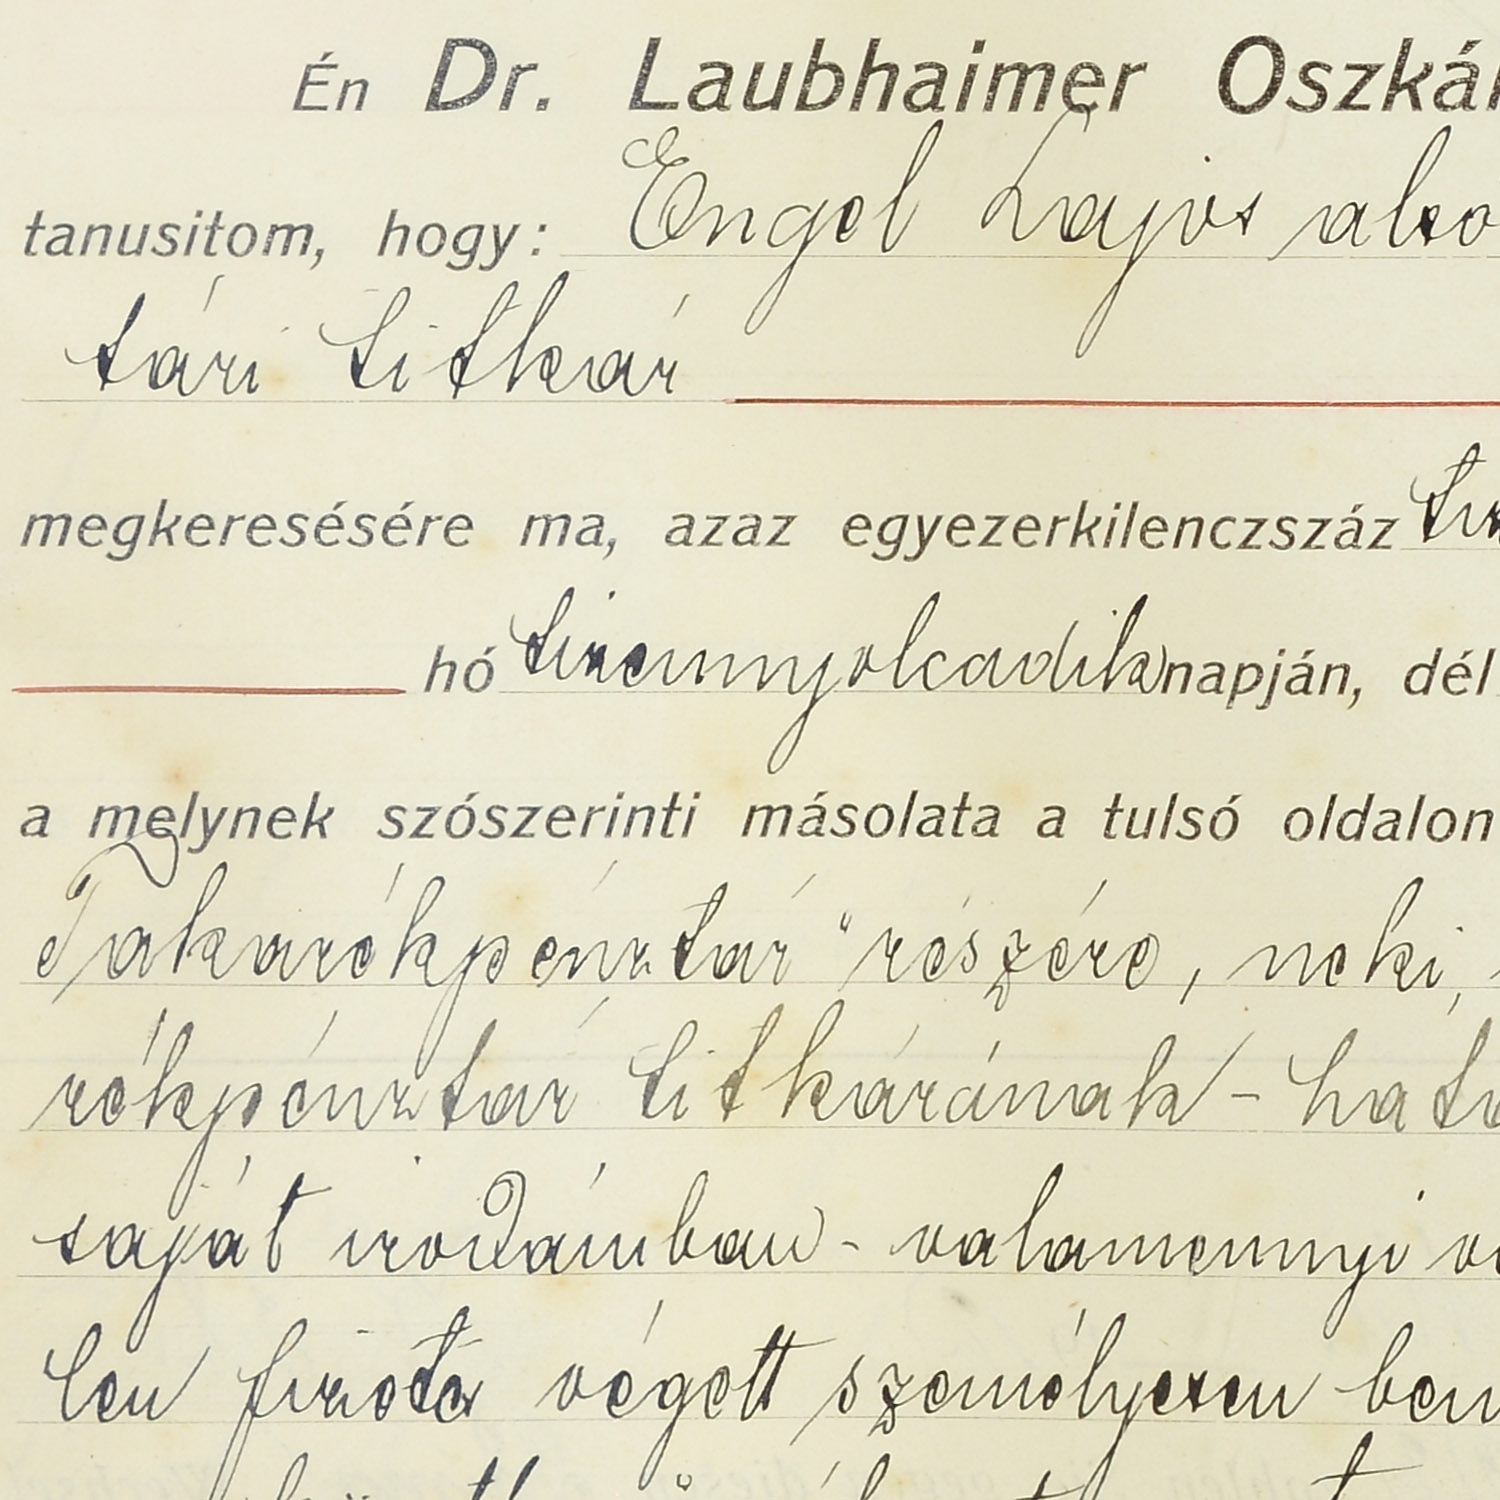 Én Dr. Laubhaimer Oszkár
tanusitom, hogy: Engel Lajos also
tári titkár
megkeresésére ma, azaz egyezerkilenczszáz tiz
hó tizennyolcadik napján, dél
a melynek szószerinti másolata a tulsó oldalon
Takarékpénztár" részére, neki,
rékpénztár titkárának - hat
saját irodámban - valamennyi
len fizetés végett személyesen bem